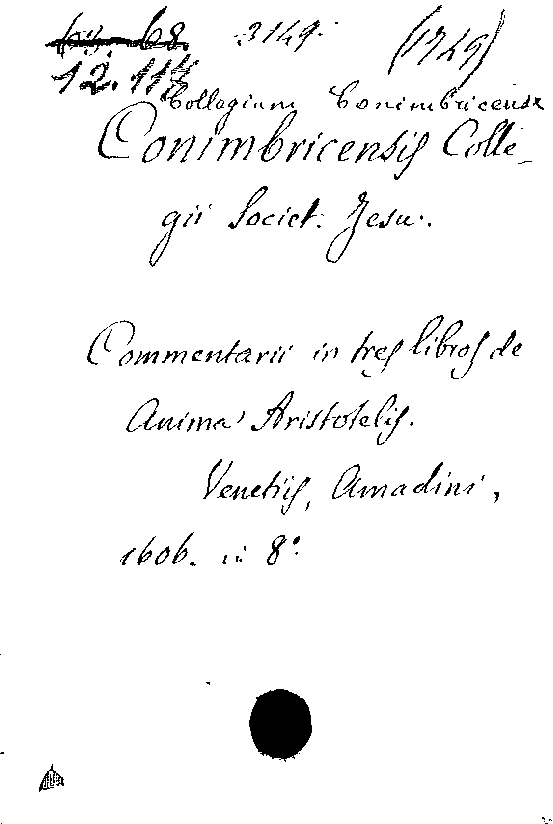 68. 3149. (1749)
12. 11
Collegium Conimbricense
Conimbricensis Colle-
gii Societ. Jesu.
Commentarii in tres libros de
Anima Aristotelis.
Venetiis, Amadini,
1606. in 8°.